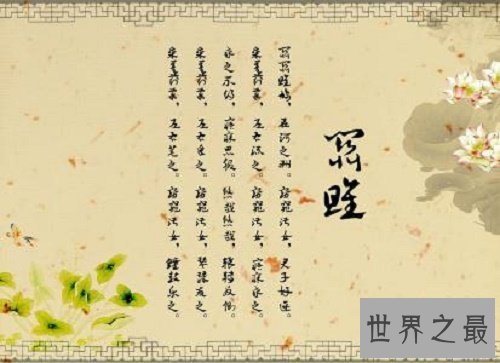 關雎
關關雎鳩，在河之洲。窈窕淑女，君子好逑。
參差荇菜，左右流之。窈窕淑女，寤寐求之。
求之不得，寤寐思服。悠哉悠哉，輾轉反側。
參差荇菜，左右采之。窈窕淑女，琴瑟友之。
參差荇菜，左右芼之。窈窕淑女，鐘鼓樂之。
世界之最